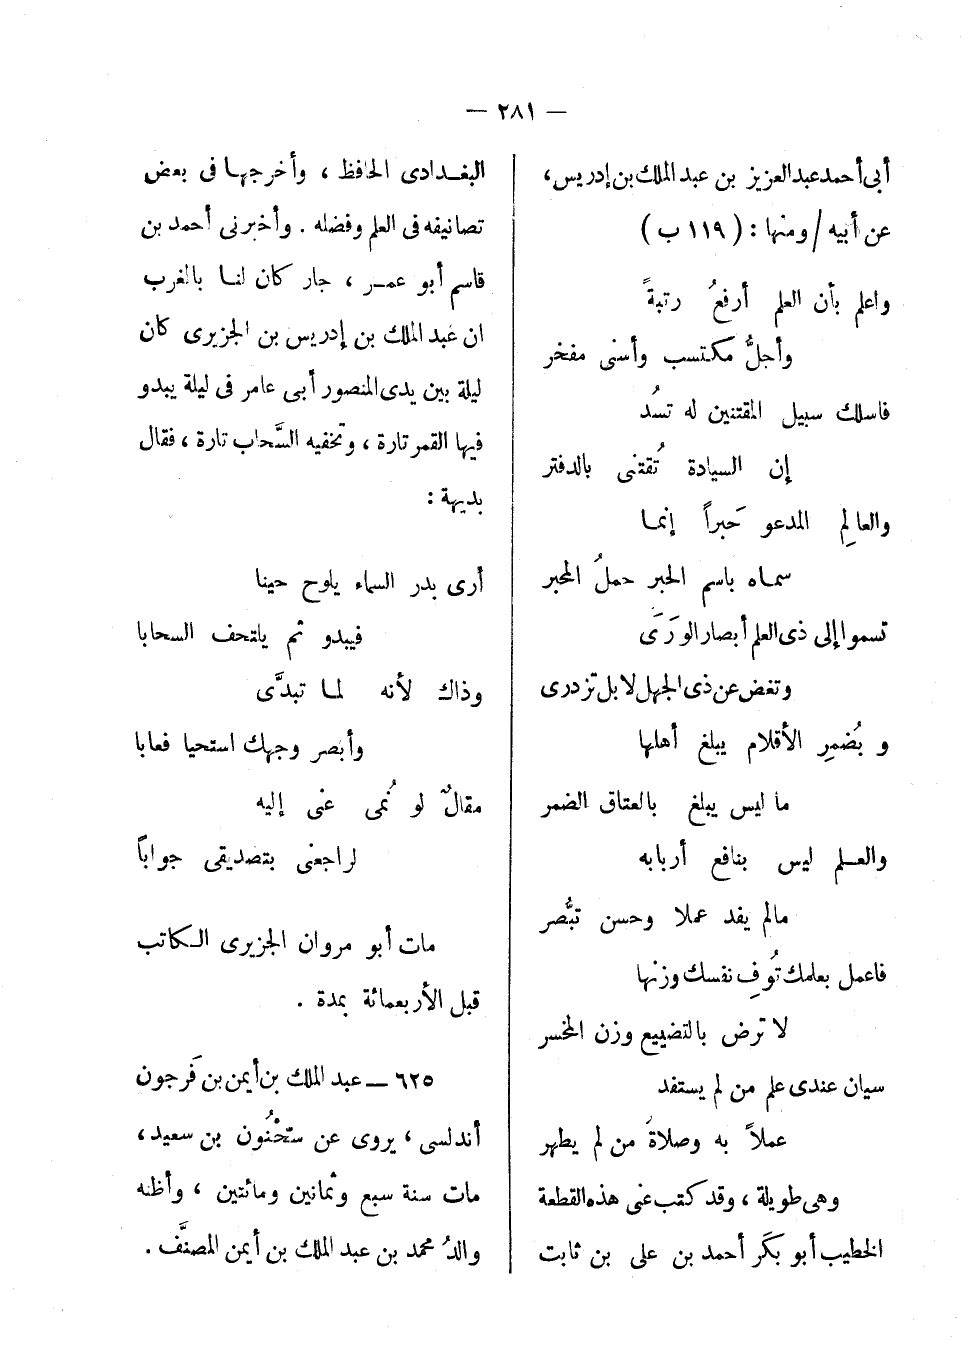 — ٢٨١ —
أبى أحمد عبد العزيز بن عبد الملك بن إدريس،
عن أبيه / ومنها : ( ١١٩ ب )
واعلم بأن العلم أرفعُ رتبةً
وأجلُّ مكتسب وأسنى مفخر
فاسلك سبيل المقتنين له تسُد
إن السيادة تُقتنى بالدفتر
والعالِم المدعو حَبراً إنما
سماه باسم الحبر حملُ المحبر
تسموا إلى ذى العلم أبصار الوَرَى
وتغض عن ذى الجهل لا بل تزدرى
و بُضمرِ الأقلام يبلغ أهلها
ما ليس يبلغ بالعتاق الضمر
والعلم ليس بنافع أربابه
مالم يفد عملا وحسن تبصُّر
فاعمل بعلمك تُوفِ نفسك وزنها
لا ترض بالتضييع وزن المخسر
سيان عندى علم من لم يستفد
عملاً به وصلاةُ من لم يطهر
وهى طويلة ، وقد كتب عنى هذه القطعة
الخطيب أبو بكَر أحمد بن على بن ثابت
البغدادى الحافظ ، وأخرجها فى بعض
تصانيفه فى العلم وفضله . وأخبرنى أحمد بن
قاسم أبو عمر ، جار كان لنا بالغرب
ان عبد الملك بن إدريس بن الجزيرى كان
ليلة بين يدى المنصور أبى عامر فى ليلة يبدو
فيها القمر تارة ، وتخفيه السَّحاب تارة ، فقال
بديهة :
أرى بدر السماء يلوح حينا
فيبدو ثم يلتحف السحابا
وذاك لأنه لما تبدَّى
وأبصر وجهك استحيا فغابا
مقالٌ لو نُمى عنى إليه
لراجعنى بتصديقى جواباً
مات أبو مروان الجزيرى الكاتب
قبل الأربعمائة بمدة .
٦٢٥ — عبد الملك بن أيمن بن فَرجون
أندلسى ، يروى عن سَحْنُون بن سعيد ،
مات سنة سبع وثمانين ومائتين ، وأظنه
والدُ محمد بن عبد الملك بن أيمن المصنَّف .